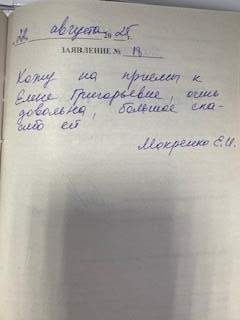 22 августа 2025 г.
ЗАЯВЛЕНИЕ № 18
Хожу на приемы к
Елене Григорьевне, очень
довольна, большое спа-
сибо ей
Мокренко Е.И.